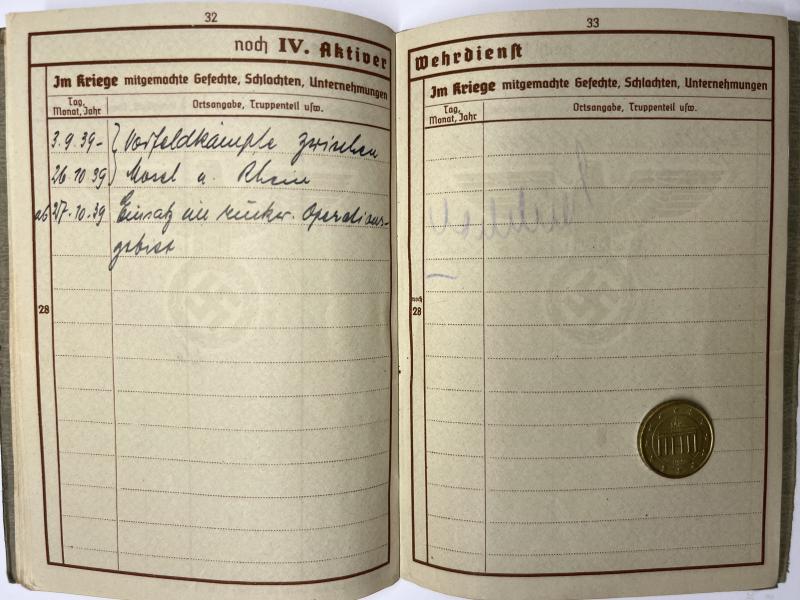 32
noch IV. Aktiver
Im Kriege mitgemachte Gefechte, Schlachten, Unternehmungen
Tag, Monat, Jahr
Ortsangabe, Truppenteil usw.
3.9.39- } Vorfeldkämpfe zwischen
26.10.39 } Mosel u. Rhein
ab 27.10.39 Einsatz im rückw. Operations-
gebiet
28
33
Wehrdienst
Im Kriege mitgemachte Gefechte, Schlachten, Unternehmungen
Tag, Monat, Jahr
Ortsangabe, Truppenteil usw.
noch
28